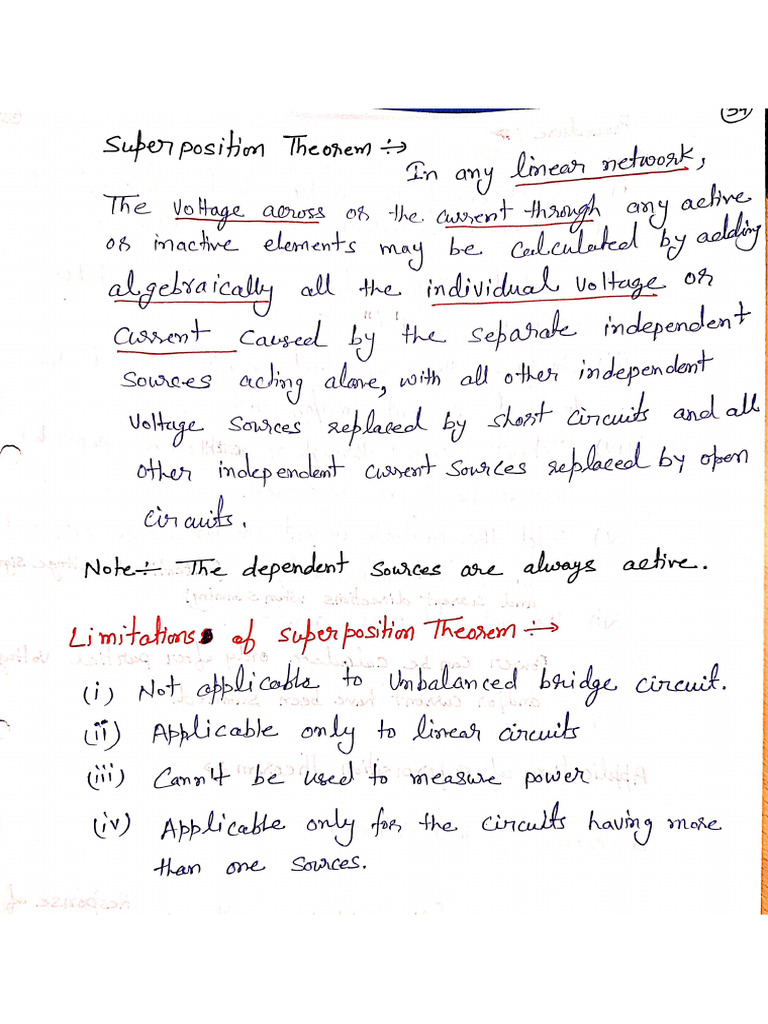 34
Superposition Theorem ÷→
In any linear network,
The voltage across or the current through any active
or inactive elements may be calculated by adding
algebraically all the individual voltage or
current caused by the separate independent
sources acting alone, with all other independent
voltage sources replaced by short circuits and all
other independent current sources replaced by open
circuits.
Note÷ The dependent sources are always active.
Limitations of superposition Theorem ÷→
(i) Not applicable to Unbalanced bridge circuit.
(ii) Applicable only to linear circuits
(iii) Cann't be used to measure power
(iv) Applicable only for the circuits having more
than one sources.